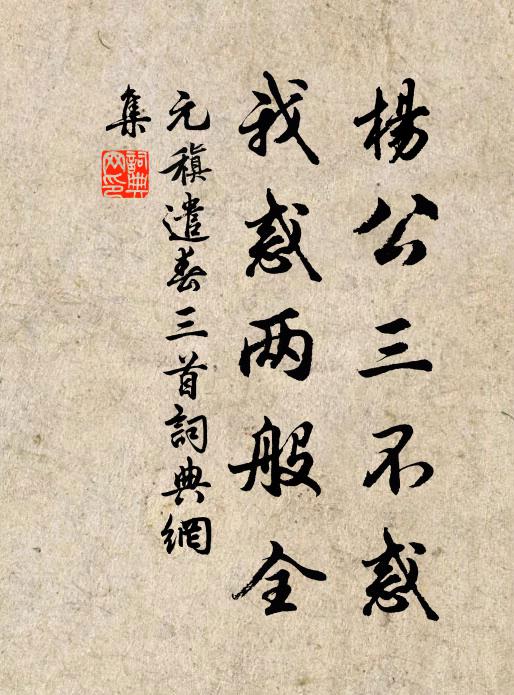 楊公三不惑
我惑两般全
元稹遣春三首詞典網
集
詞典网印